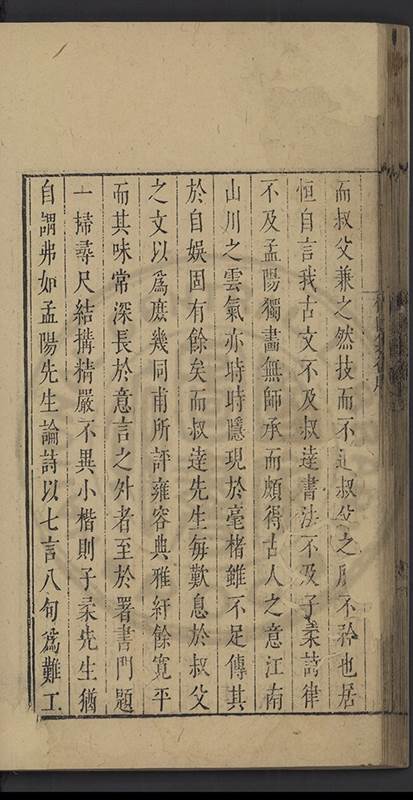 而叔父兼之然技而不 叔父之 不矜也居
恒自言我古文不及叔達書法不及子柔詩律
不及孟陽獨畫無師承而頗得古人之意江南
山川之雲氣亦時時隱現於毫楮雖不足傳其
於自娛固有餘矣而叔達先生每歎息於叔父
之文以爲庶幾同甫所評雍容典雅紆餘寬平
而其味常深長於意言之外者至於署書門題
一掃尋尺結搆精嚴不異小楷則子柔先生猶
自謂弗如孟陽先生論詩以七言八句爲難工